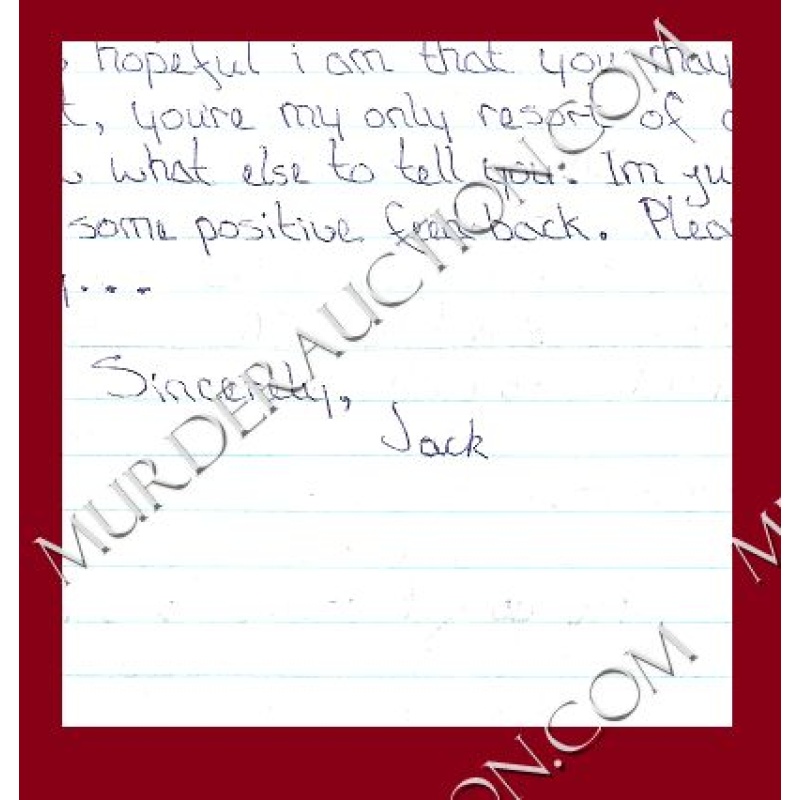 hopeful i am that you may
t, youre my only resort of
what else to tell you. Im
some positive back. Plea
y...
Sincerely,
Jack
MURDERAUCTION.COM
ON.COM
MU